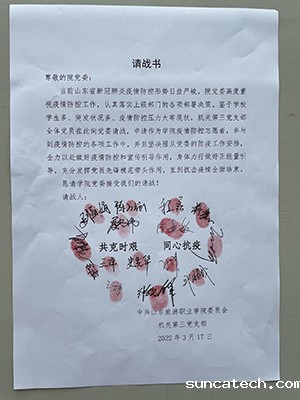 请战书
尊敬的院党委：
当前山东省新冠肺炎疫情防控形势日益严峻，院党委高度重
视疫情防控工作，认真落实上级部门的各项部署决策。鉴于学校
学生多、突发状况多、疫情防控压力大等现状，机关第三党支部
全体党员在此向党委请战，申请作为学院疫情防控志愿者，参与
到疫情防控的各项工作中，并且坚决服从党委的防疫工作安排，
全力以赴做好疫情防控和宣传引导作用，身体力行做好正能量引
导，充分发挥党员先锋模范带头作用，直到抗击疫情全面胜来。
恳请学院党委接受我们的请战！
请战人：
共克时艰 同心抗疫
中共山东旅游职业学院委员会
机关第三党支部
2022 年 3 月 17 日
suncatech.com